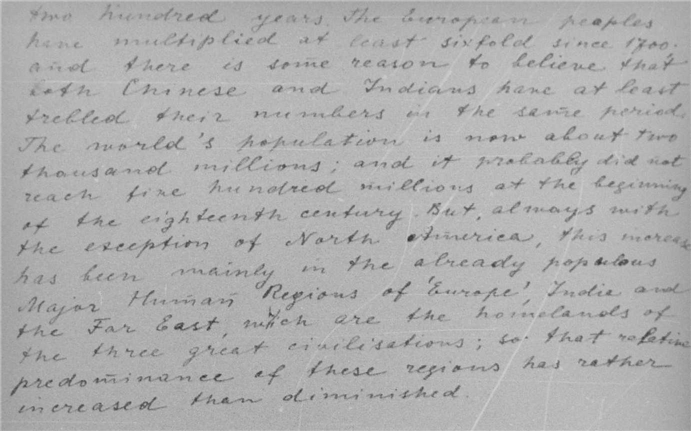 two hundred years. The European peoples
have multiplied at least sixfold since 1700.
and there is some reason to believe that
both Chinese and Indians have at least
trebled their numbers in the same period.
The world's population is now about two
thousand millions; and it probably did not
reach five hundred millions at the beginning
of the eighteenth century. But, always with
the exception of North America, this increase
has been mainly in the already populous
Major Human Regions of 'Europe', India and
the Far East, which are the homelands of
the three great civilisations; so that relative
predominance of these regions has rather
increased than diminished.